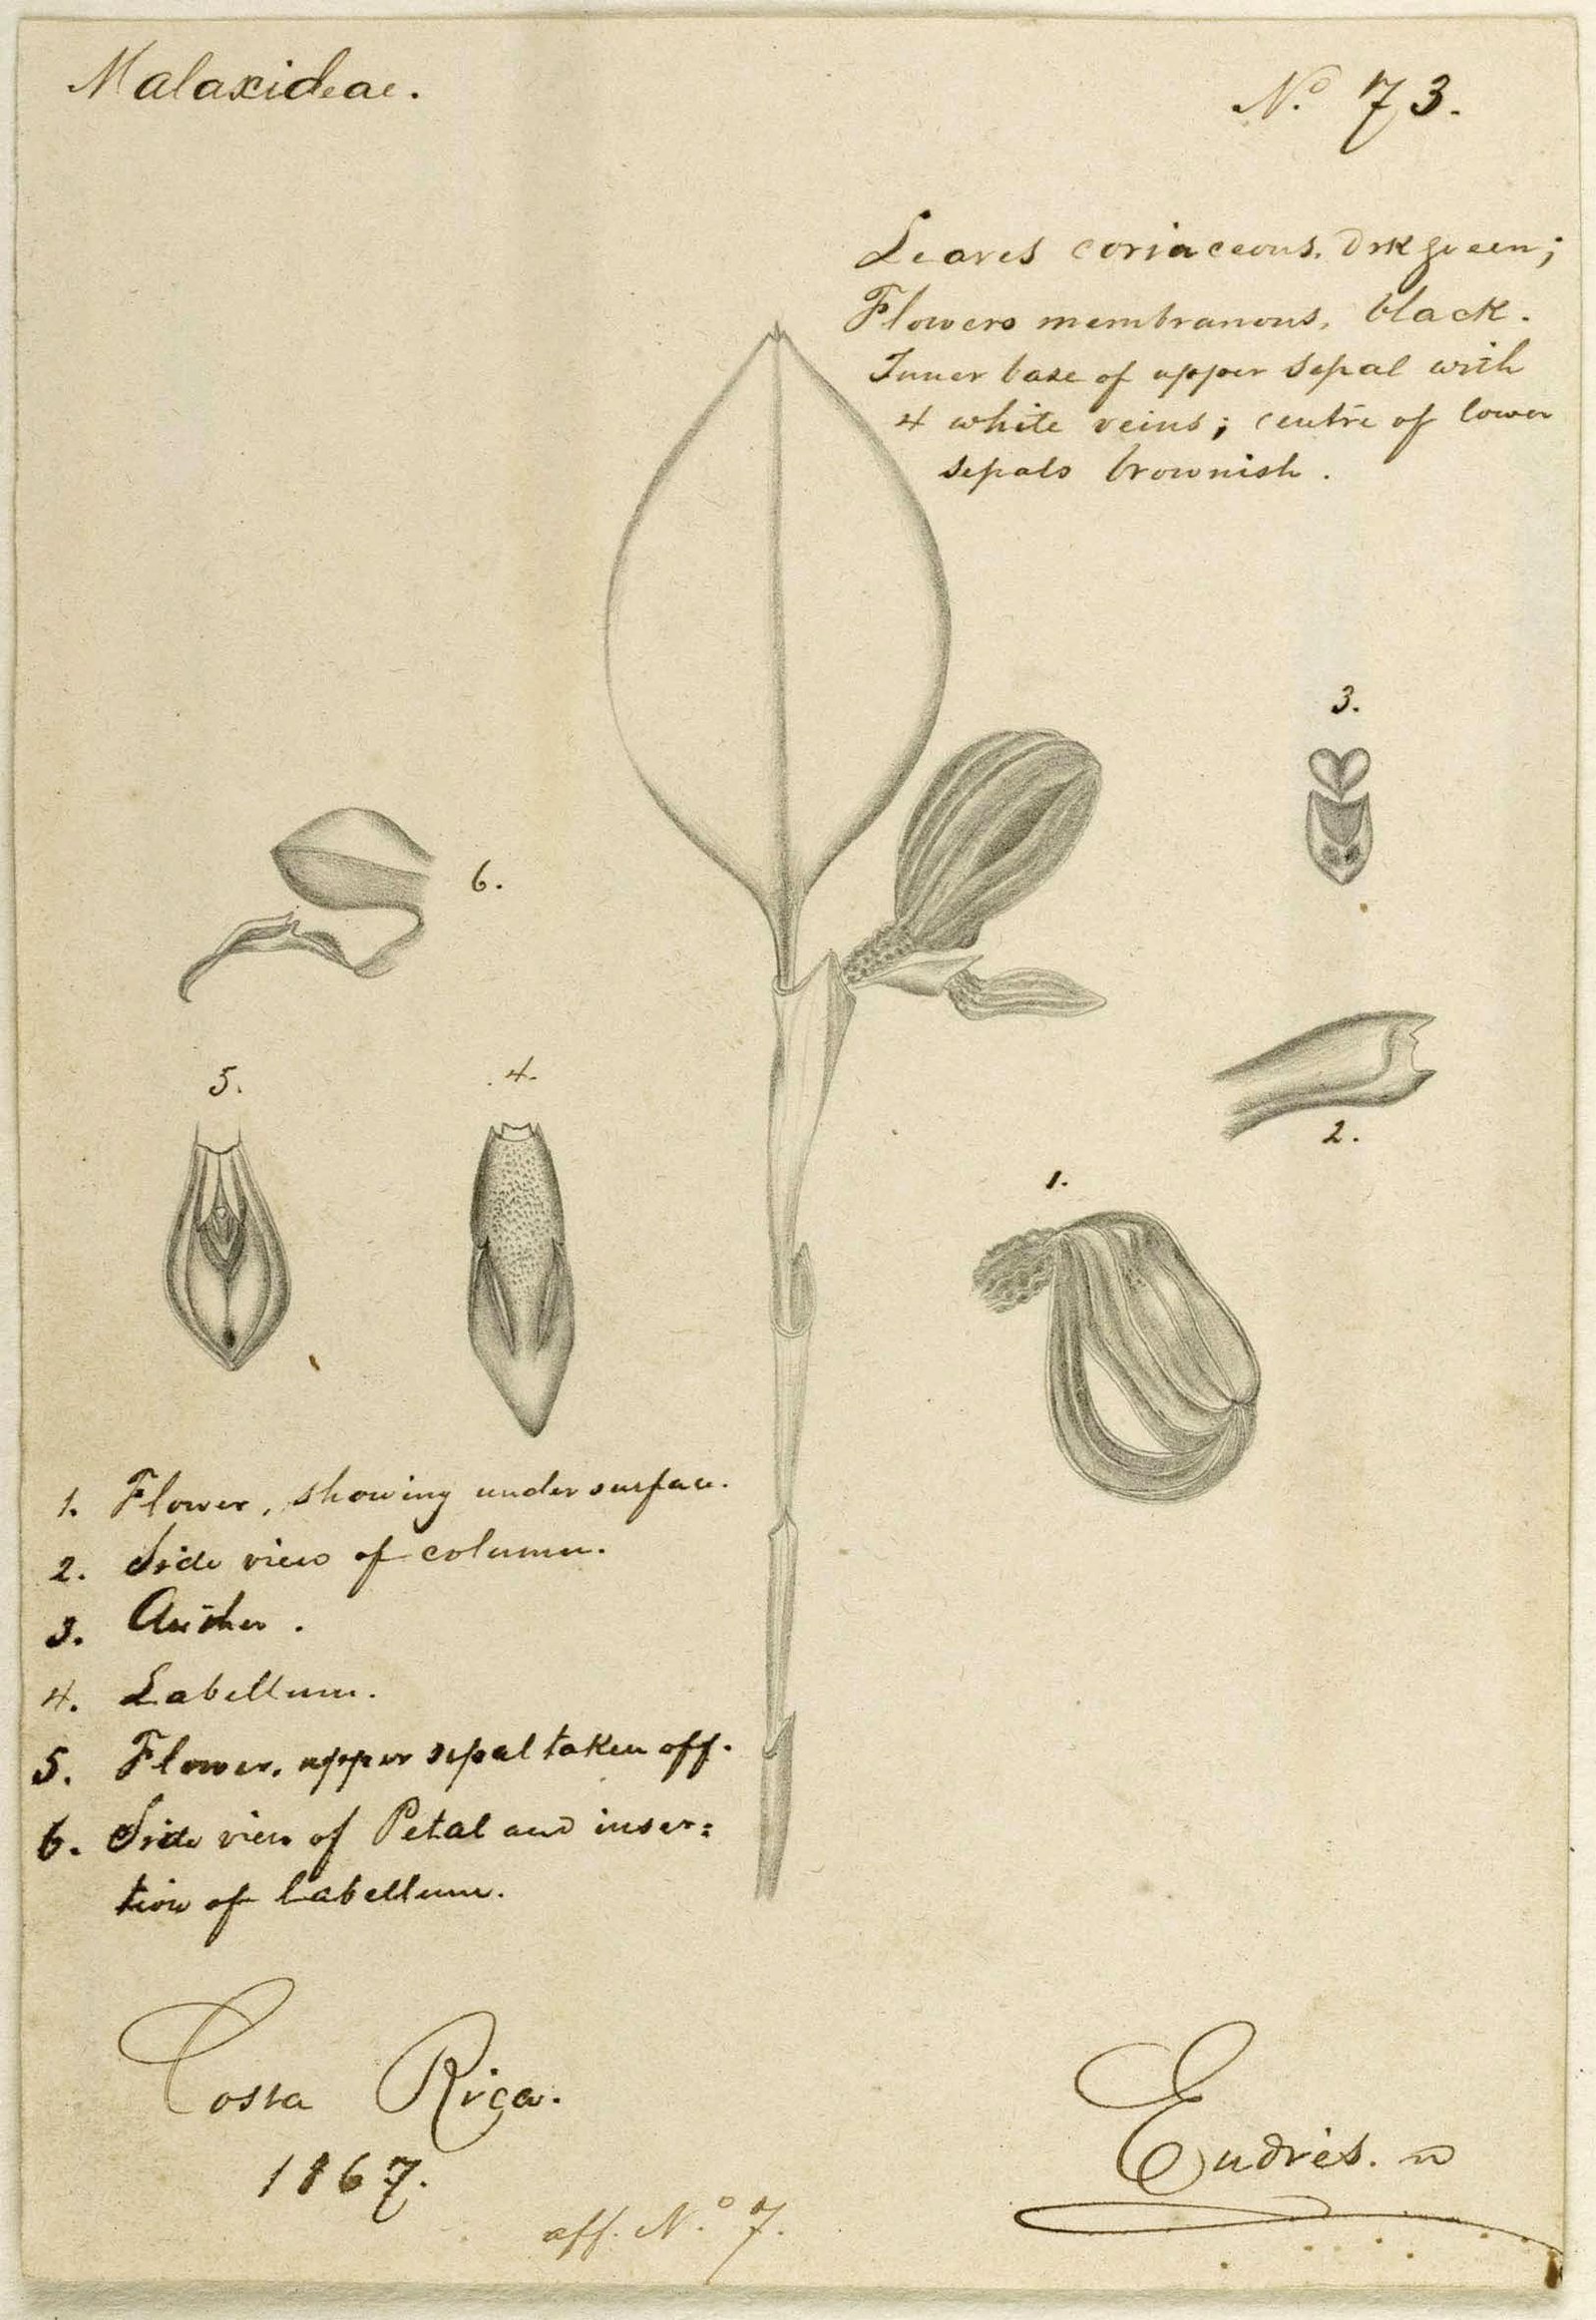 Malaxideae.
No. 73.
Leaves coriaceous. Drk green;
Flowers membranous, black.
Inner base of upper sepal with
4 white veins; centre of lower
sepals brownish.
3.
6.
5.
4.
2.
1.
1. Flower, showing under surface.
2. Side view of column.
3. Anther.
4. Labellum.
5. Flower, upper sepal taken off.
6. Side view of Petal and inser=
tion of Labellum.
Costa Rica.
1867.
Endrés.
aff. No. 7.